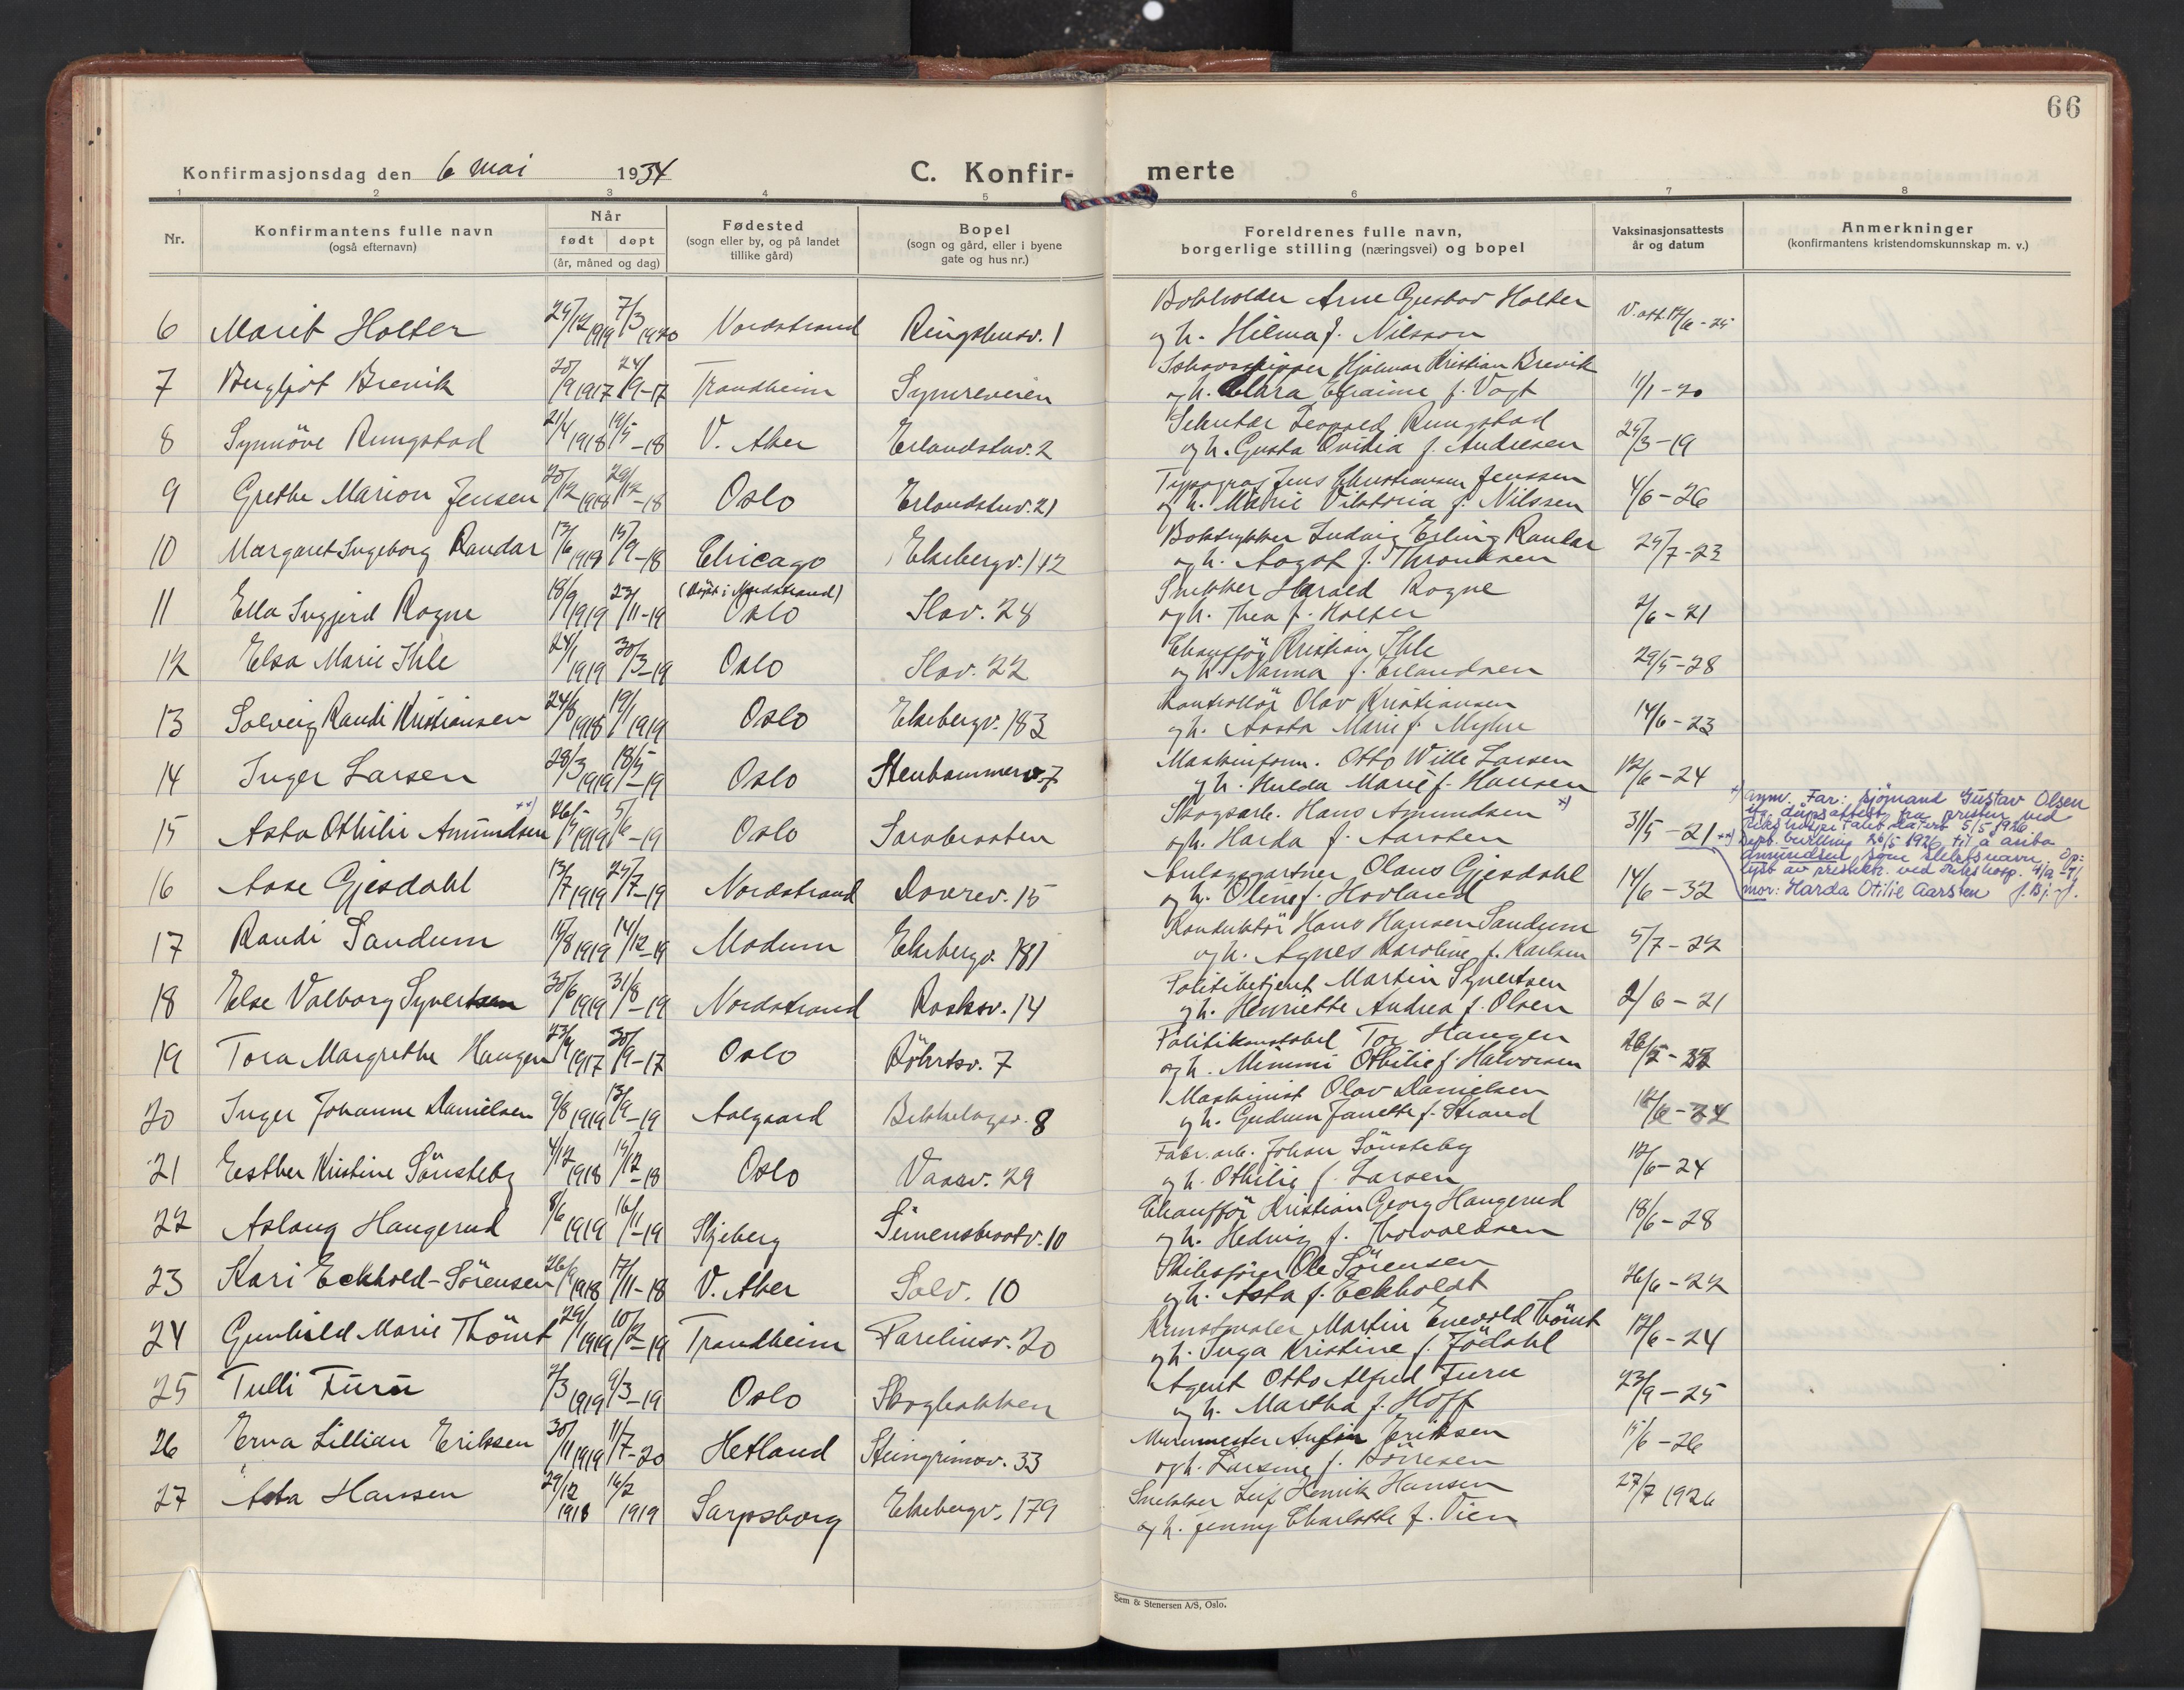 66
Konfirmasjonsdag den 6 mai 1934
C. Konfir-merte
1 2 3 4 5 6 7 8
Nr.
Konfirmantens fulle navn
(også efternavn)
Når
født døpt
(år, måned og dag)
Fødested
(sogn eller by, og på landet
tillike gård)
Bopel
(sogn og gård, eller i byene
gate og hus nr.)
Foreldrenes fulle navn,
borgerlige stilling (næringsvei) og bopel
Vaksinasjonsattests
år og datum
Anmerkninger
(konfirmantens kristendomskunnskap m. v.)
6 Marit Holter 1919 7/3 1920 Nordstrand Ringshusv. 1
Bokholder Arne Gustav Holter
og h. Hilma f. Nilsson
7 Bergljot Brevik 1917 Trondheim Symreveien
Hjalmar Kristian Brevik
og h. Clara f. Vogt 11/1-20
8 Synnöve Rungstad 21/4 1918 19/5-18 V. Aker Erlandstuv. 2
Leopold Rungstad
og h. Gusta Ovidia f. Andresen 25/3-19
9 Grethe Marion Jensen 20/12 1918 29/12-18 Oslo Erlandstuv. 21
Typograf Jens Christiansen Jenssen
og h. Marie Viktoria f. Nilssen 4/6-26
10 Margaret Ingeborg Randar 13/6 1918 15/9-18 Chicago Ekebergv. 142
Boktrykker Ludvig Erling Randar
og h. Aagot f. Throndsen 25/7-23
11 Ella Ingjerd Rogne 18/9 1919 23/11-19 (Döpt i Nordstrand)
Oslo Slov. 24
Snekker Harald Rogne
og h. Thea f. Holter 2/6-21
12 Elsa Marie Ihle 24/1 1919 30/3-19 Oslo Slov. 22
Chaufför Kristian Ihle
og h. Nanna f. Erlandsen 29/5-28
13 Solveig Randi Kristiansen 24/8 1918 19/1 1919 Oslo Ekebergv. 183
Kontrollör Olav Kristiansen
og h. Aasta Marie f. Myhre 14/6-23
14 Inger Larsen 28/3 1919 18/5-19 Oslo Stenhammerv. 7
Maskinform. Otto Wille Larsen
og h. Hulda Marie f. Hansen 12/6-24
15 Asta Othilie Amundsen xx) 1919 5/6-19 Oslo Sarabraaten
Skogsarb. Hans Amundsen x)
og h. Harda f. Aarsten 31/5-21
x) Far: sjømand Gustav Olsen
flg. dåpsattest fra presten ved
Rikshospitalet datert 5/5 1926
xx) Depb. bevilling 26/5 1926 til å anta
Amundsen som slektsnavn. Op-
lyst av prestektr. ved Rikshosp.
mor: Harda Otilie Aarsten
16 Aase Gjesdahl 13/7 1919 27/7-19 Nordstrand Dovrev. 15
Anlagsgartner Olaus Gjesdahl
og h. Oline f. Hovland 14/6-32
17 Randi Sandum 15/8 1919 14/12-19 Modum Ekebergv. 181
Konduktör Hans Hansen Sandum
og h. Agnes Karoline f. Karlsen 5/7-22
18 Else Valborg Syvertsen 30/6 1919 31/8-19 Nordstrand Raskov. 14
Politibetjent Martin Syvertsen
og h. Henriette Andrea f. Olsen 2/6-21
19 Tora Margrethe Haugen 1917 30/9-17 Oslo Röhrtsv. 7
Politikonstabel Tor Haugen
og h. Mimmi Othilie f. Halvorsen
20 Inger Johanne Danielsen 9/8 1919 13/9-19 Aalgaard Bekkelagsv. 8
Maskinist Olav Danielsen
og h. Gudrun Janette f. Strand 12/6-24
21 Esther Kristine Sönsteby 4/12 1918 15/12-18 Oslo Vaarv. 29
Fabr. arb. Johan Sönsteby
og h. Othilie f. Larsen 12/6-24
22 Aslaug Haugerud 8/6 1919 16/11-19 Skjeberg Simensbraatv. 10
Chaufför Kristian Georg Haugerud
og h. Hedvig f. Thorvaldsen 18/6-28
23 Kari Eckhold-Sörensen 26/9 1918 17/11-18 V. Aker Solv. 10
Skibsförer Ole Sörensen
og h. Asta f. Eckholdt 26/6-22
24 Gunhild Marie Thömt 29/1 1919 10/2-19 Trondheim Parelinsv. 20
Kunstmaler Martin Enevold Thömt
og h. Inga Kristine f. Jödahl 12/6-24
25 Tulli Furu 2/3 1919 9/3-19 Oslo Skogbakken
Agent Otto Alfred Furu
og h. Martha f. Hoff 23/9-25
26 Erna Lillian Eriksen 30/11 1919 11/7-20 Hetland Steingrimsv. 33
Murermester Eriksen
og h. Larsine f. Börresen 15/6-26
27 Asta Hansen 29/12 1918 16/2 1919 Sarpsborg Ekebergv. 179
Snekker Leif Henrik Hansen
og h. Jenny Charlotte f. Vien 27/7 1926
Sem & Stenersen A/S, Oslo.